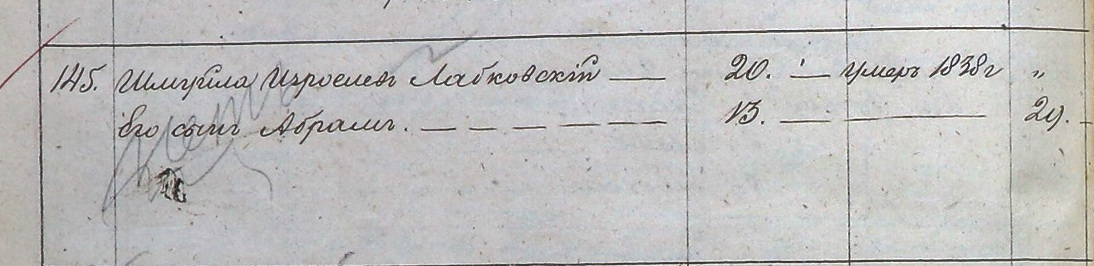 145. Шмуйла Изроелевъ Лабковскій — 20. — умеръ 1838г "
Его сынъ Абрамъ. — — — — — — 13. — — 29. —